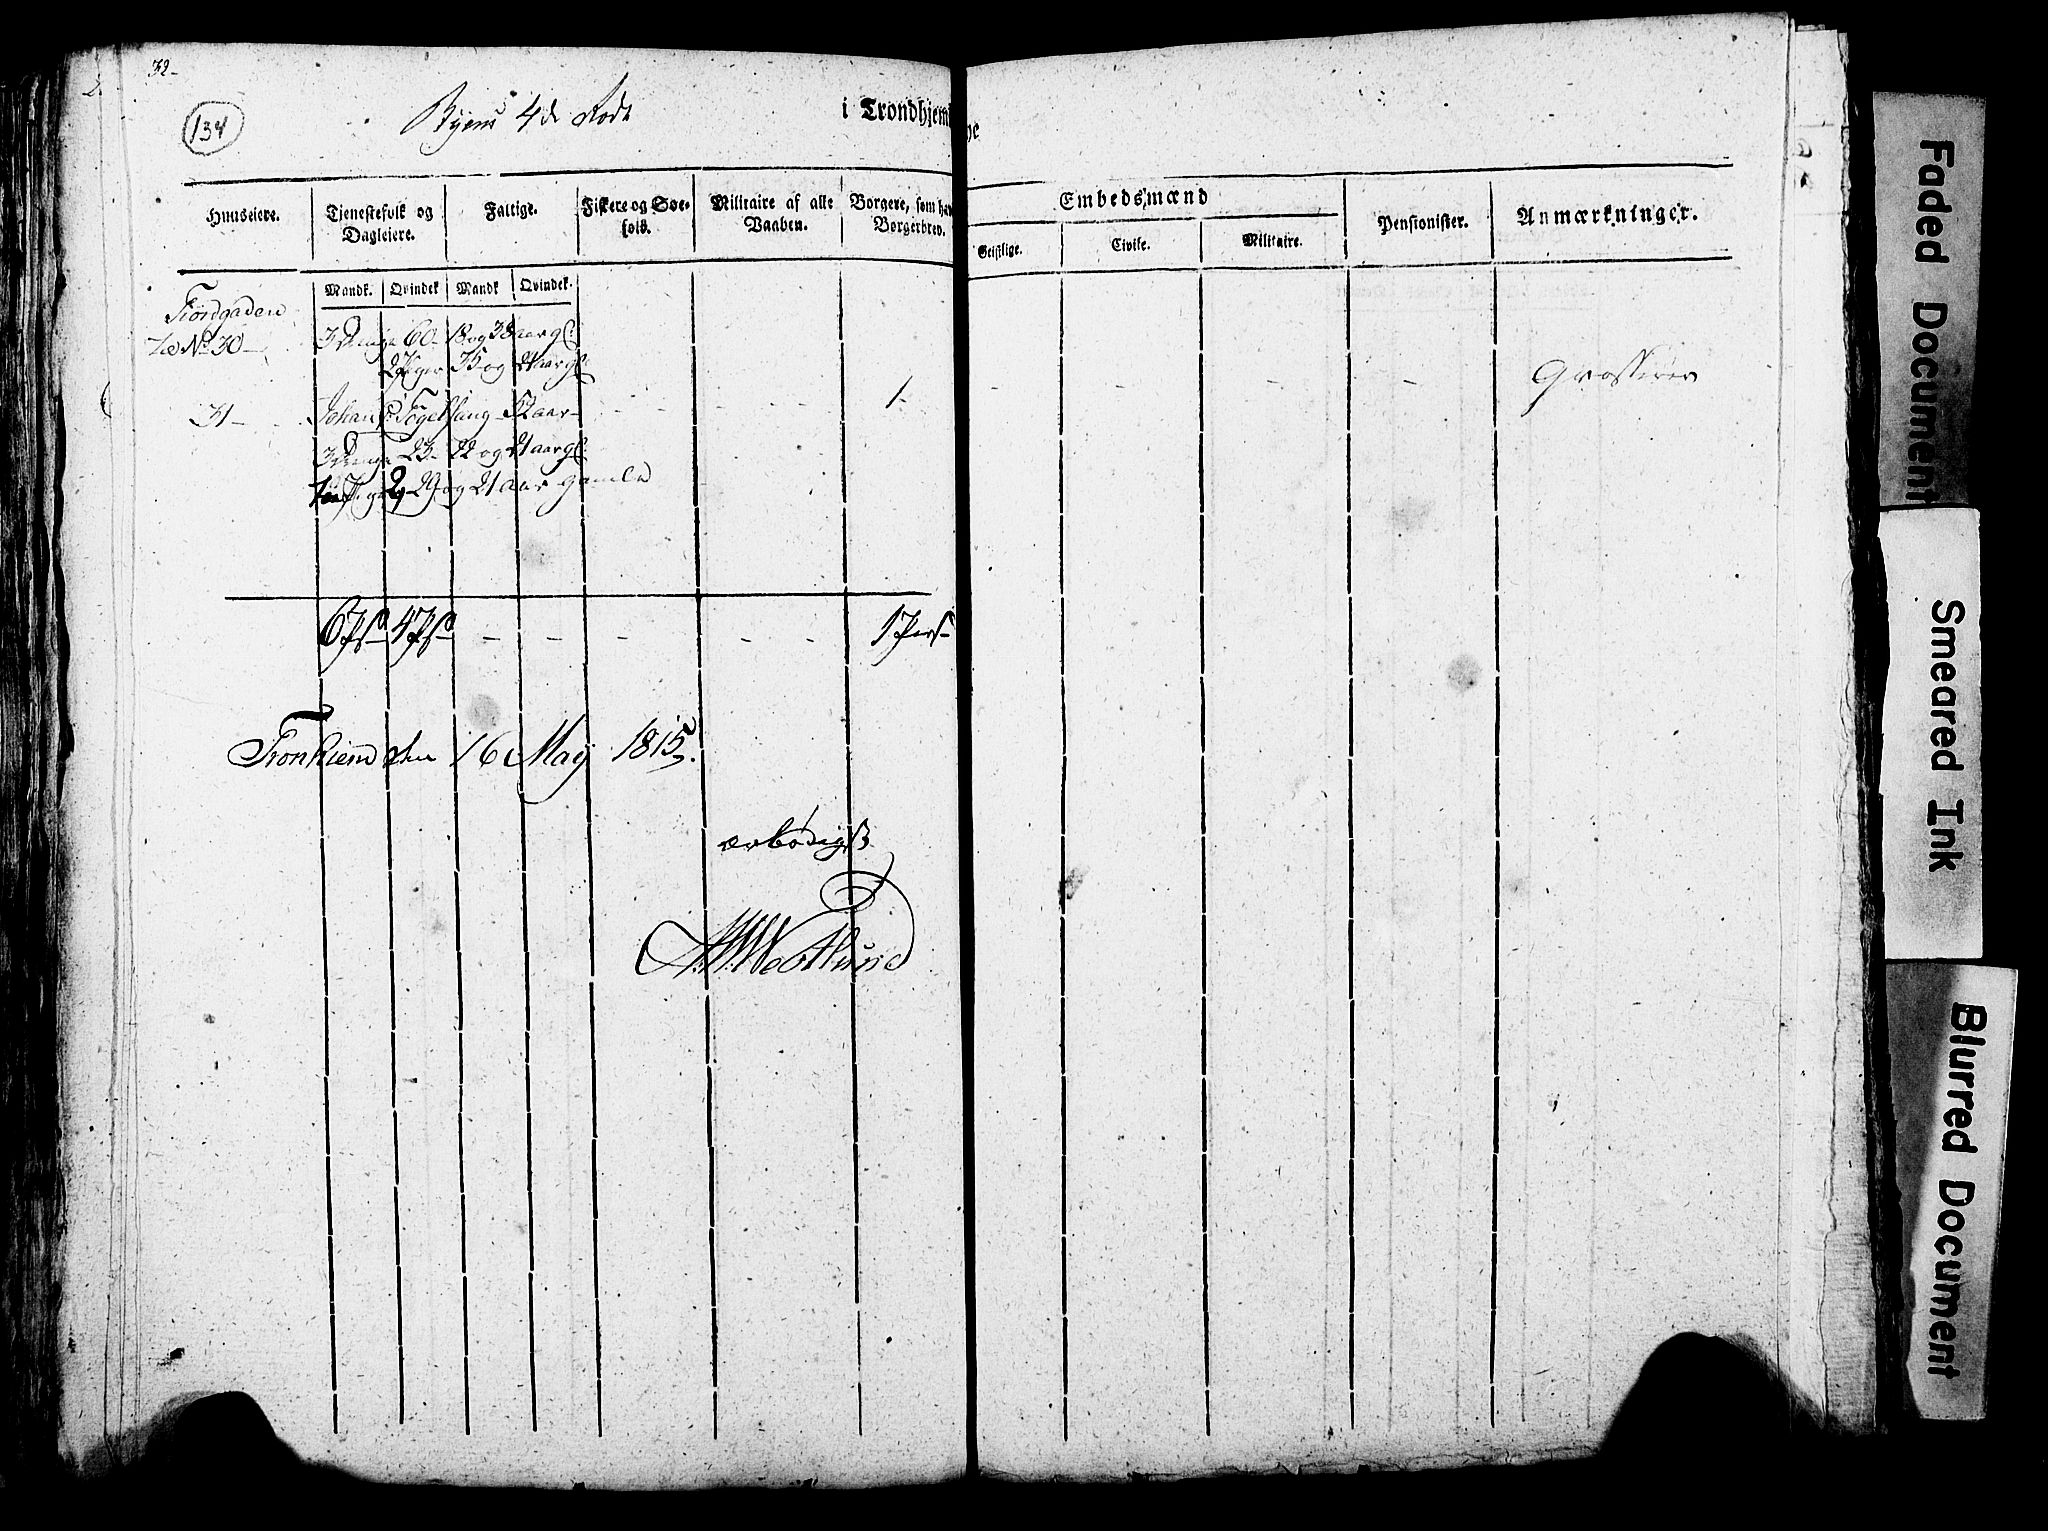 32-
134
Byens 4de Rode
i Trondhjems
Huuseiere.
Tjenestefolk og Dagleiere.
Fattige.
Fiskere og Søefolk.
Militaire af alle Vaaben.
Borgere, som have Borgerbrev.
Embedsmænd
Geistlige.
Civile.
Militaire.
Pensionister.
Anmærkninger.
Mandk. Qvindek Mandk Qvindek.
Fiordgaden
No 30 - 3 Drenge 60- 18 og 38 aar gl:
2 Piger 35 og 21 aar gl:
31 - Johan Fogelsang - 52 aar - 1- Grosserer
3 Drenge 23- 22 og 21 aar gl:
29 og 21 aar gamle
6 Ps 4 Ps - - - - - 1 Pers
Tronhiem den 16 May 1815.
ærbødigst
Westlund
Faded Document
Smeared Ink
Blurred Document